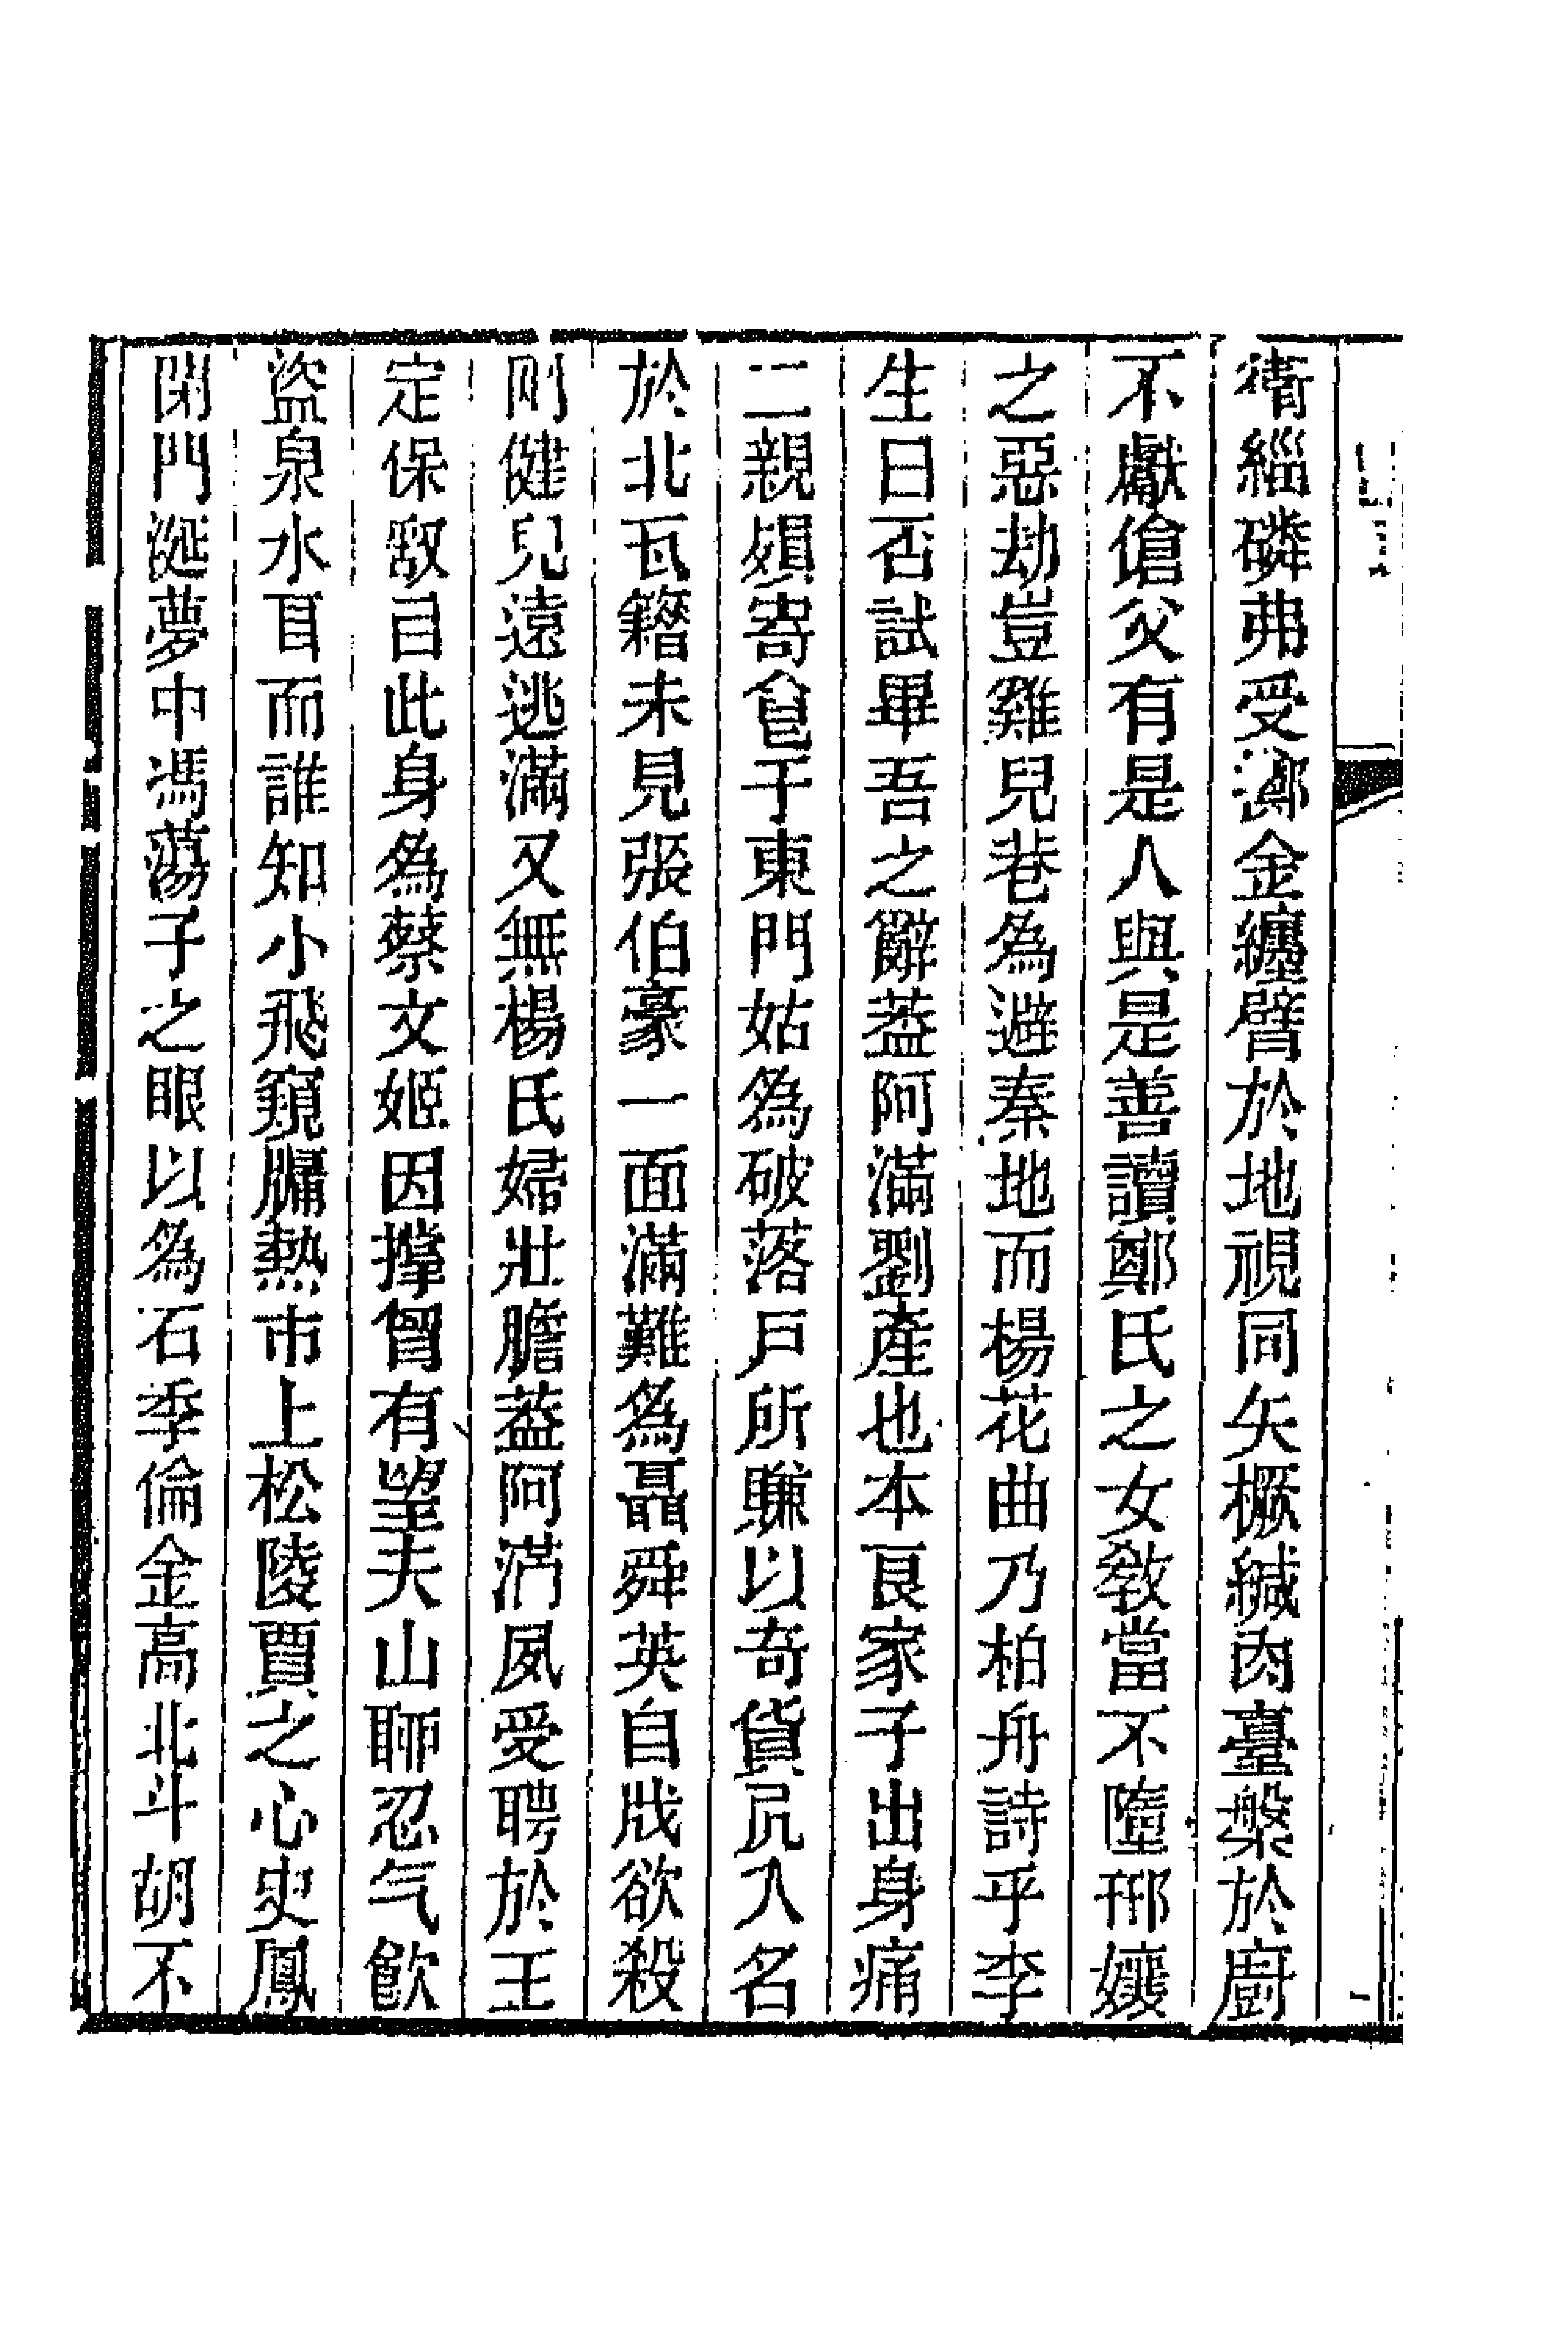 緇磷弗受擲金纏臂於地視同矢橛緘肉臺槃於廚
不獻傖父有是人與是善讀鄭氏之女敎當不墮邗孃
之惡劫豈雞兒巷為避秦地而楊花曲乃柏舟詩乎李
生曰否試畢吾之辭葢阿滿劉產也本良家子出身痛
二親殞寄食于東門姑為破落戶所賺以奇貨凥入名
於北瓦籍未見張伯豪一面滿難為聶舜英自戕欲殺
則健兒遠逃滿又無楊氏婦壯膽葢阿滿夙受聘於王
定保㪉目此身為蔡文姬因撑曾有望夫山聊忍气飮
盜泉水耳而誰知小飛窺牖熱市上松陵賈之心史鳳
閉門涎夢中馮蕩子之眼以為石季倫金高北斗胡不